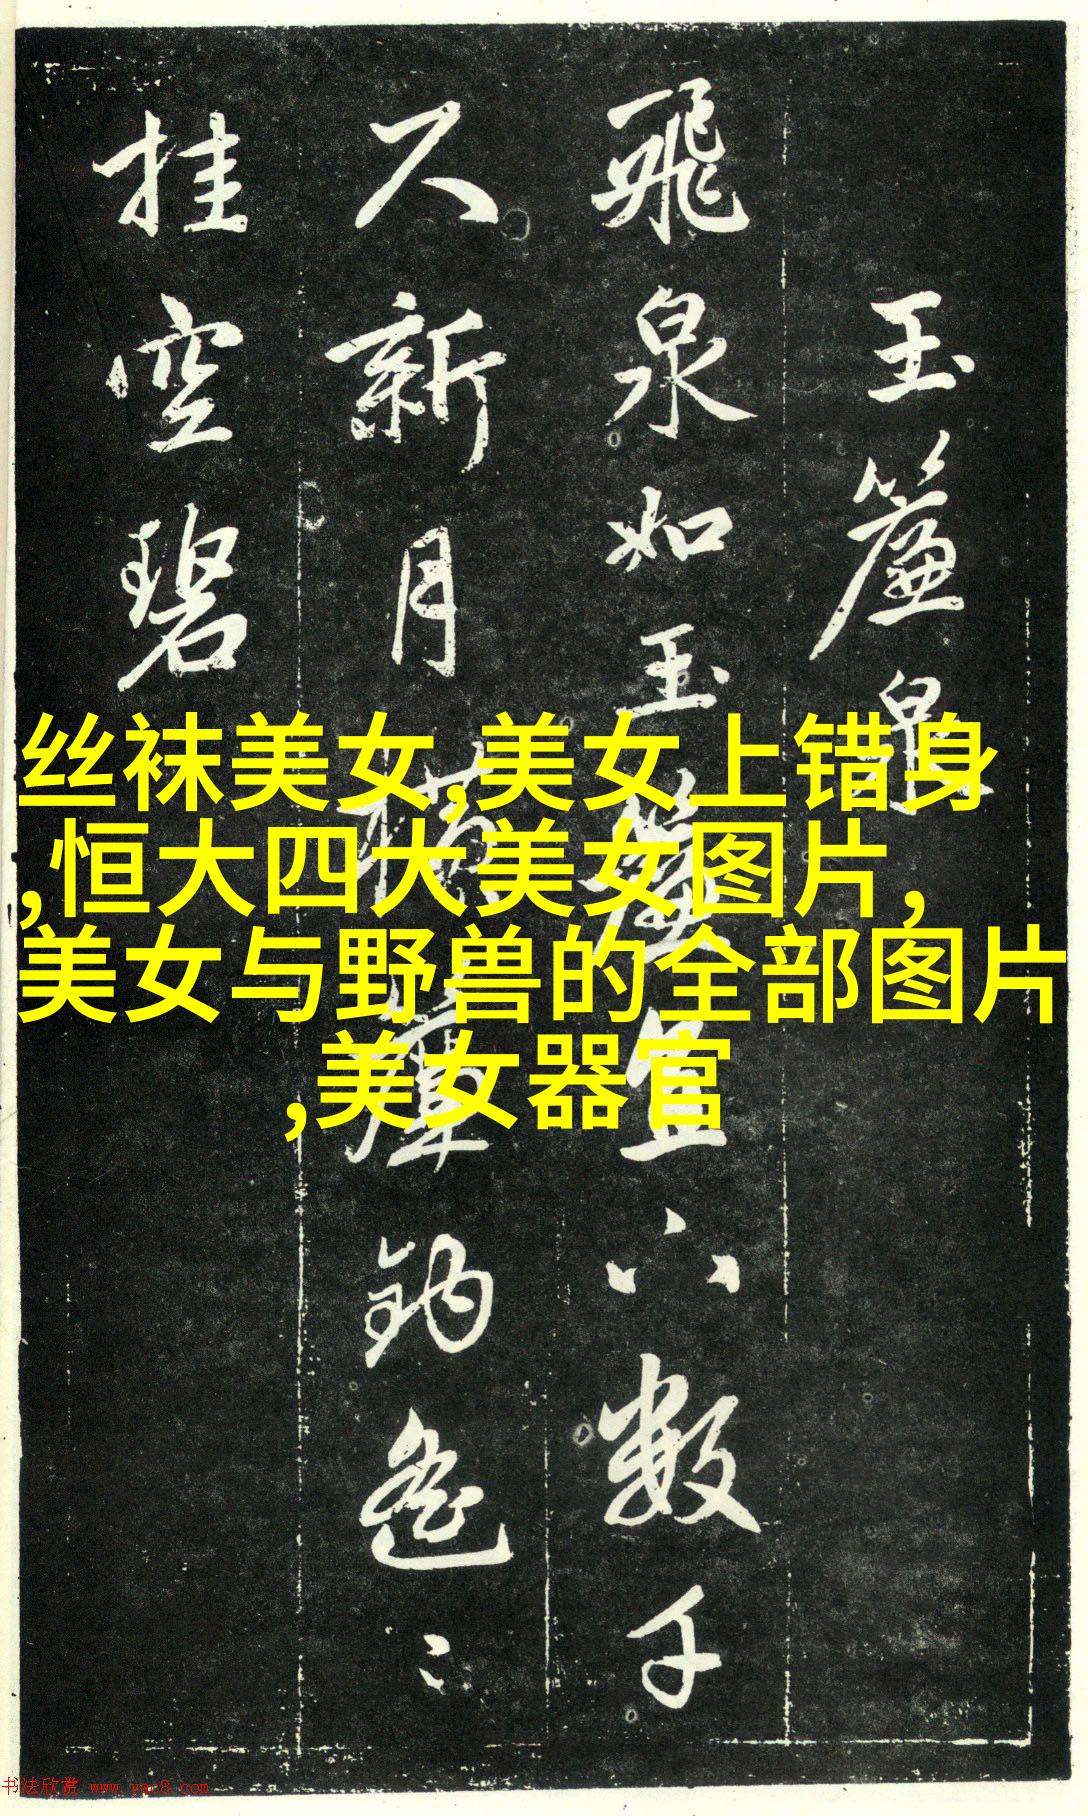 玉簾泉
飛泉如玉簾直下數千
尺新月橫簾鈎遙〻
挂空碧
丝袜美女,美女上错身
,恒大四大美女图片,
美女与野兽的全部图片
,美女器官
书法欣赏 www.yac8.com